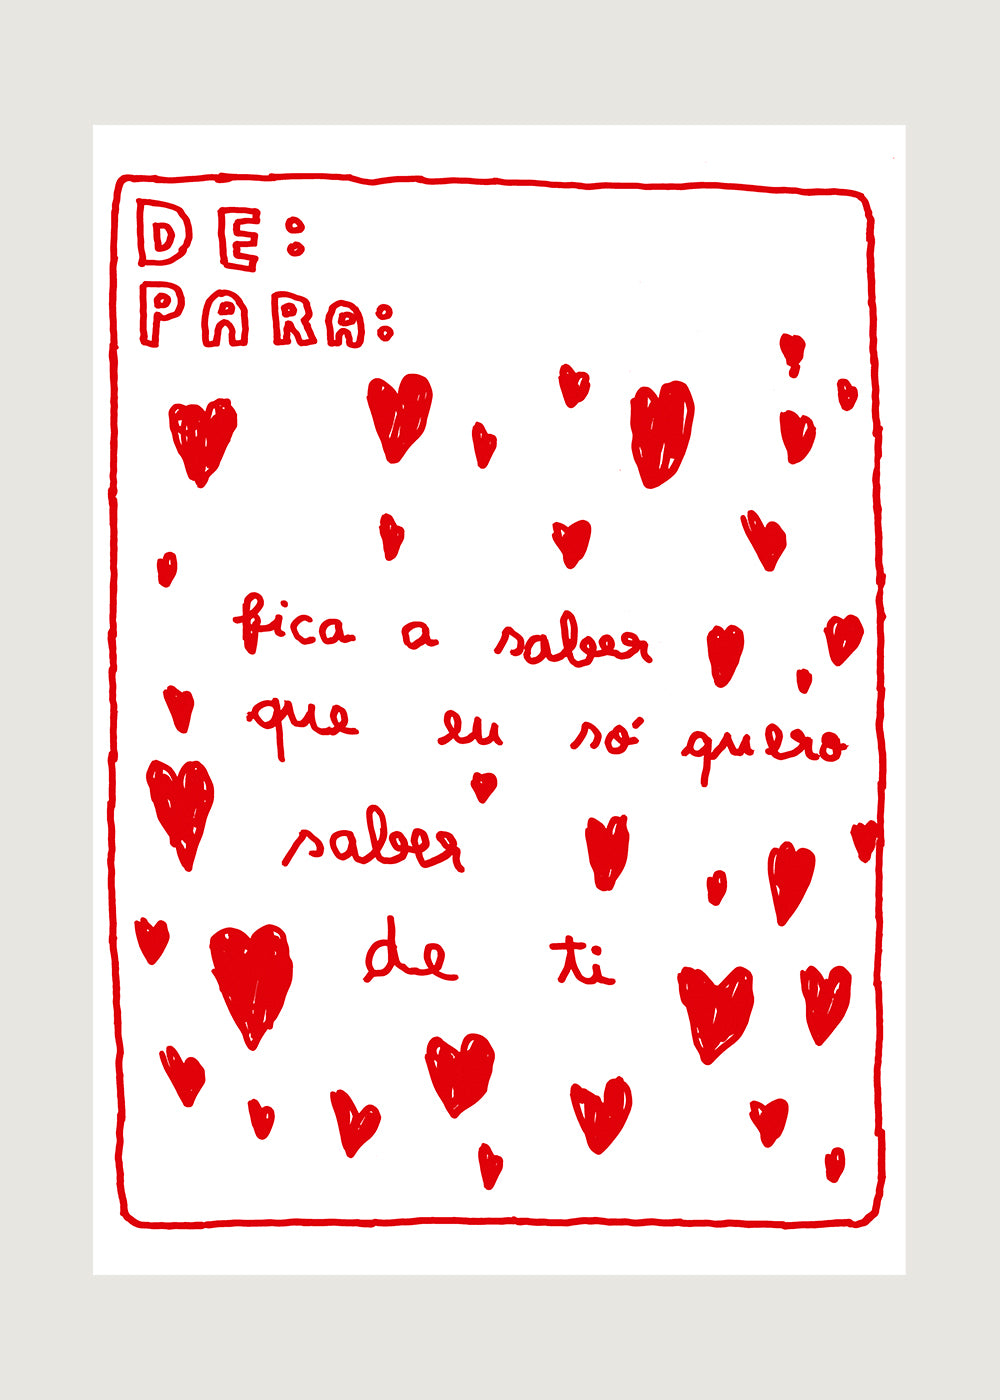 DE:
PARA:
fica a saber
que eu só quero
saber
de ti